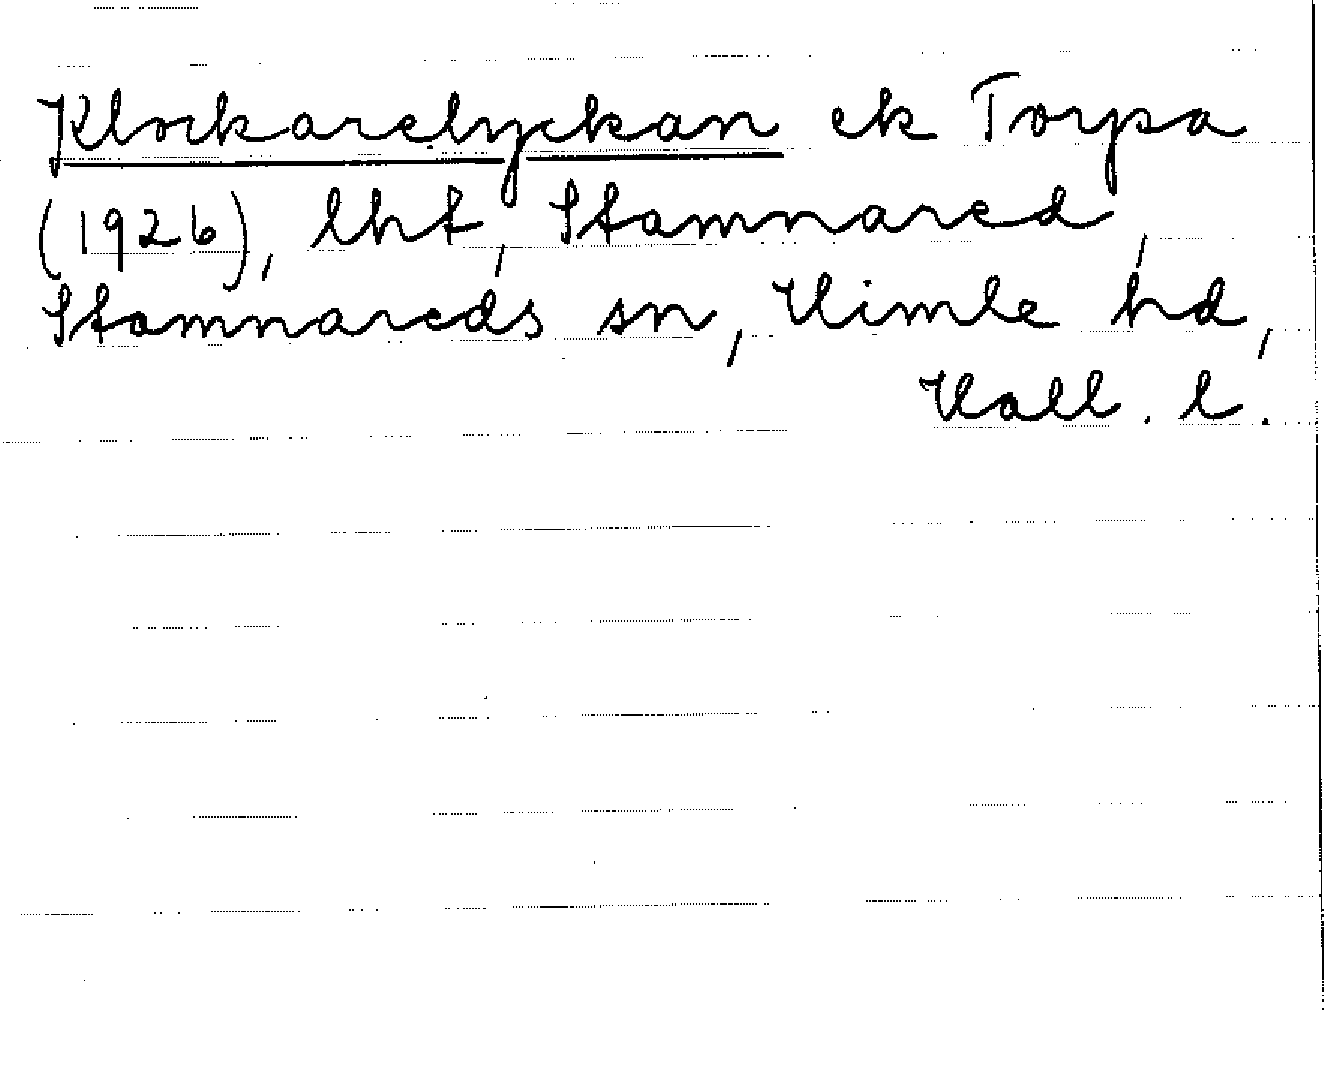 Klockarelyckan ek Torpa
(1926), lht, Stamnared,
Stamnareds sn, Himle hd,
Hall. l.